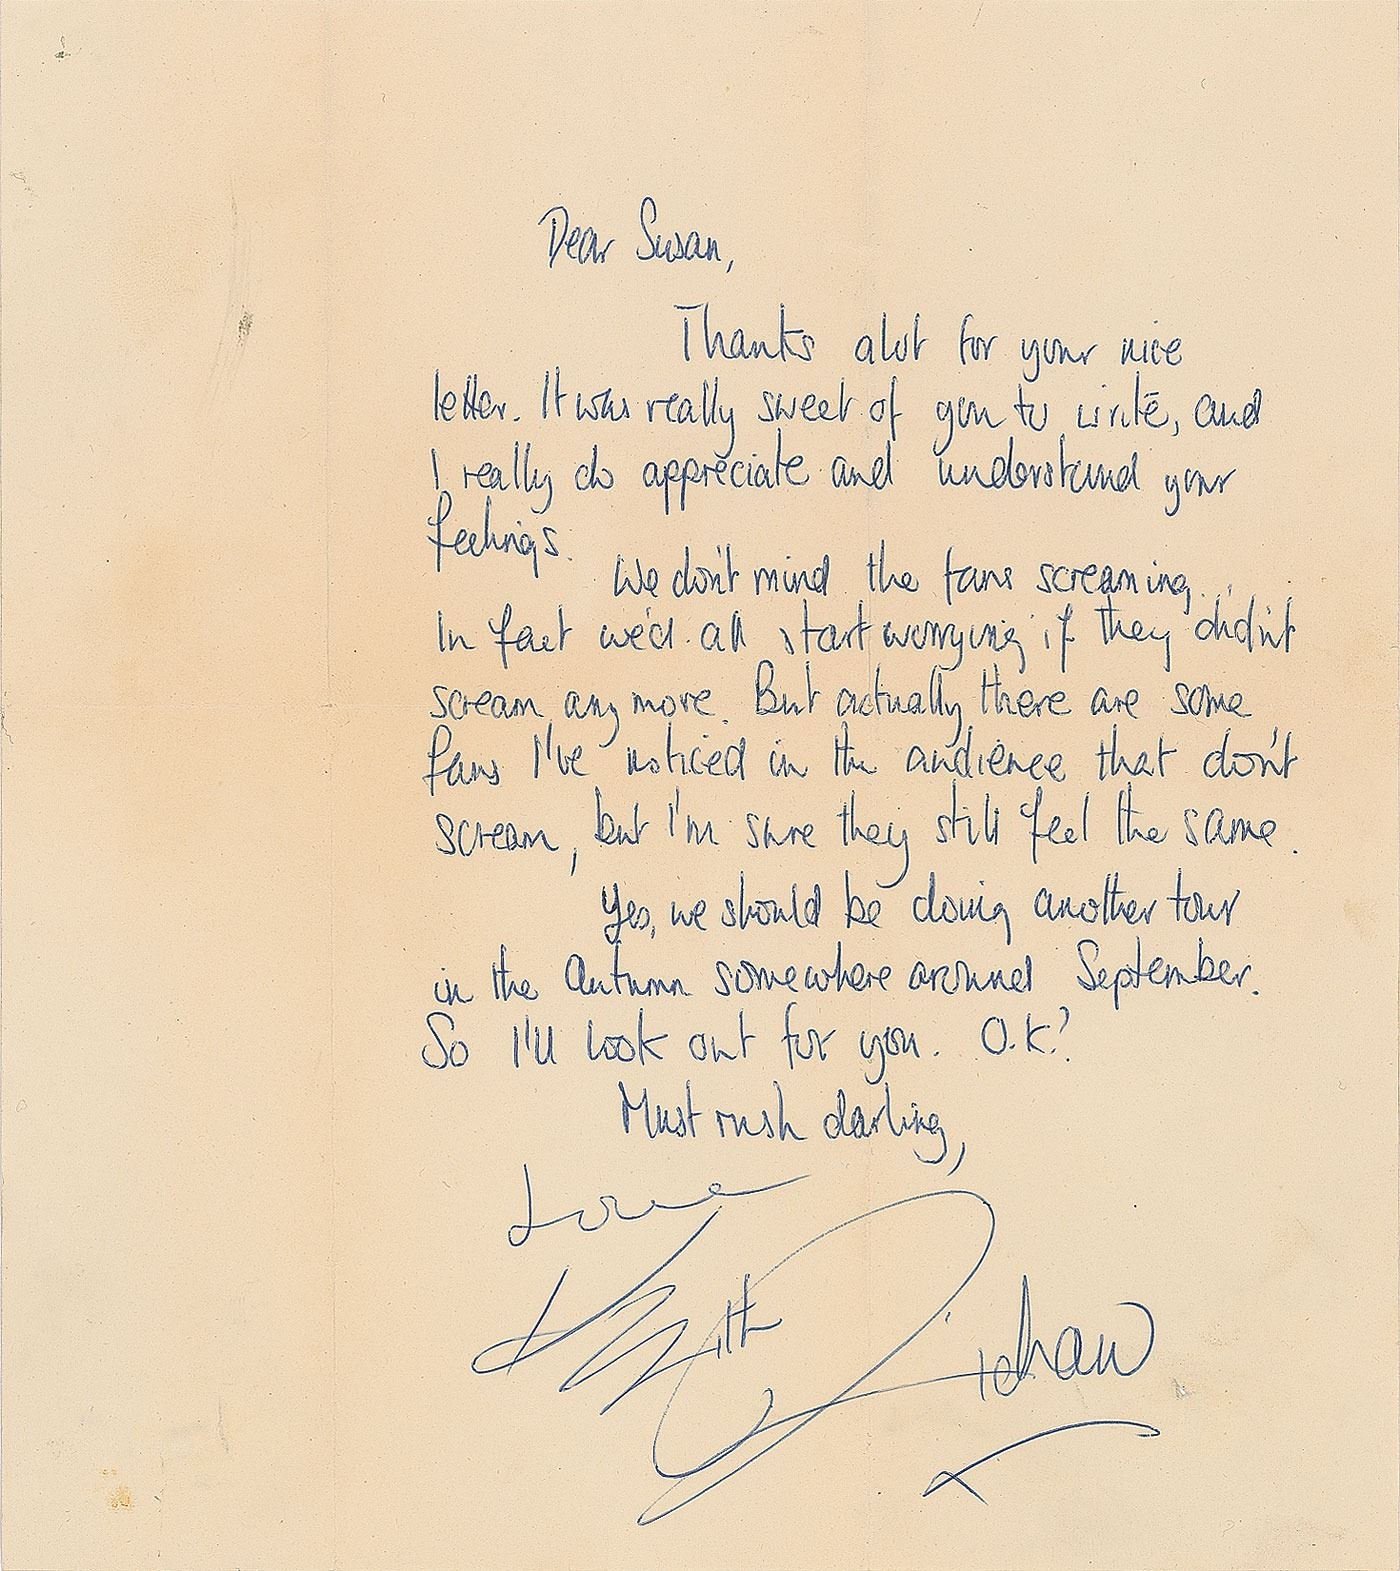 Dear Susan,
Thanks alot for your nice
letter. It was really sweet of you to write, and
I really do appreciate and understand your
feelings.
We don't mind the fans screaming.
In fact we'd all start worrying if they didn't
scream any more. But actually there are some
fans I've noticed in the audience that don't
scream, but I'm sure they still feel the same.
Yes, we should be doing another tour
in the Autumn somewhere around September.
So I'll look out for you. O.K?
Must rush darling,
Love
Keith Richard
x